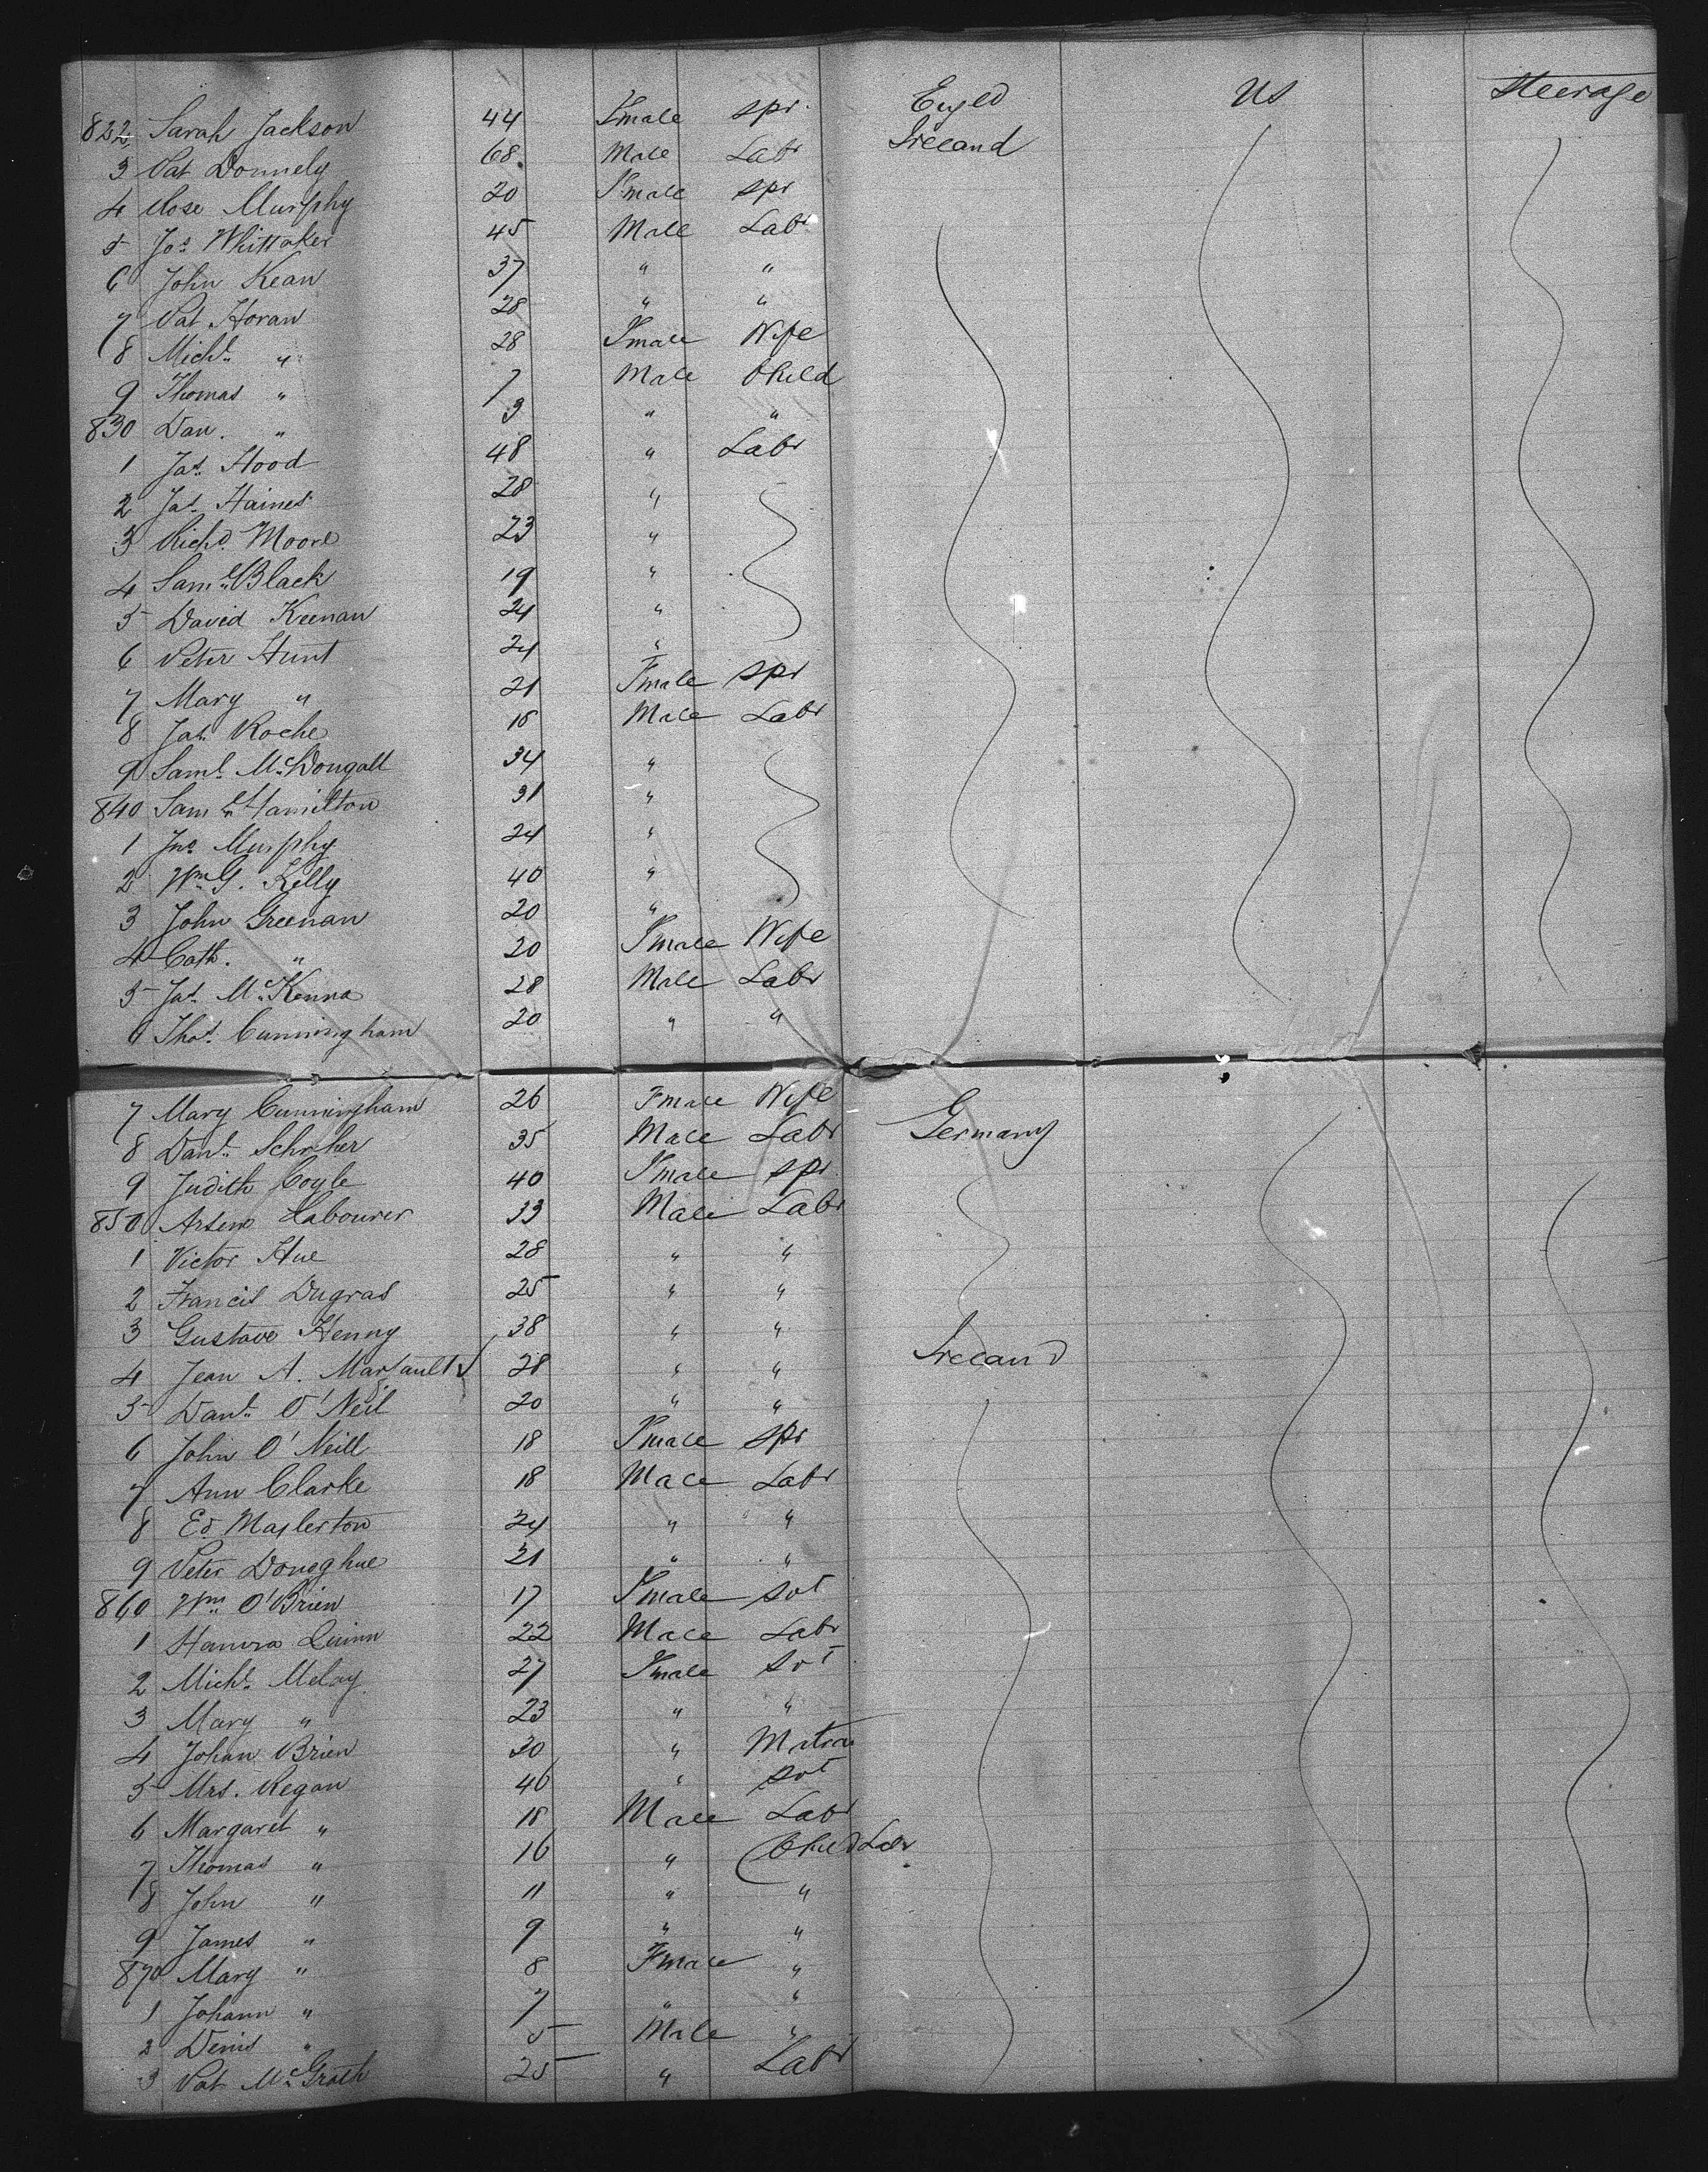 822 Sarah Jackson 44 Fmale Spr Engld US Steerage
3 Pat Donnely 68 Male Labr Ireland
4 Rose Murphy 20 Fmale Spr
5 Jos Whittaker 45 Male Labr
6 John Kean 37 " "
7 Pat Horan 28 " "
8 Michl " 28 Fmale Wife
9 Thomas " 7 Male Child
830 Dan. " 3 " "
1 Jas Hood 48 " Labr
2 Jas Haines 28 "
3 Richd Moore 23 "
4 Saml Black 19 "
5 David Keenan 24 "
6 Peter Hunt 24 "
7 Mary " 21 Fmale Spr
8 Jas Roche 18 Male Labr
9 Saml McDougall 34 "
840 Saml Hamilton 31 "
1 Jno Murphy 24 "
2 Wm G. Kelly 40 "
3 John Greenan 20 "
4 Cath. " 20 Fmale Wife
5 Jas McKenna 28 Male Labr
6 Thos Cunningham 20 " "
7 Mary Cunningham 26 Fmale Wife
8 Danl 35 Male Labr Germany
9 Judith Coyle 40 Fmale Spr
850 Arsene Labourer 33 Male Labr
1 Victor Hue 28 " "
2 Francis Dugras 25 " "
3 Gustave Henny 38 " "
4 Jean A. 28 " " Ireland
5 Danl O'Neil 20 " "
6 John O'Neill 18 Fmale Spr
7 Ann Clarke 18 Male Labr
8 Ed 24 " "
9 Peter Donoghue 21 " "
860 Wm O'Brien 17 Fmale Svt
1 Hanora Quinn 22 Male Labr
2 Michl Melay 27 Fmale Svt
3 Mary " 23 " "
4 Johan Brien 30 " Matron
5 Mrs. Regan 46 " Svt
6 Margaret " 18 Male Labr
7 Thomas " 16 " Child Labr
8 John " 11 " "
9 James " 9 " "
870 Mary " 8 Fmale "
1 Johann " 7 " "
2 Denis " 5 Male "
3 Pat McGrath 25 " Labr